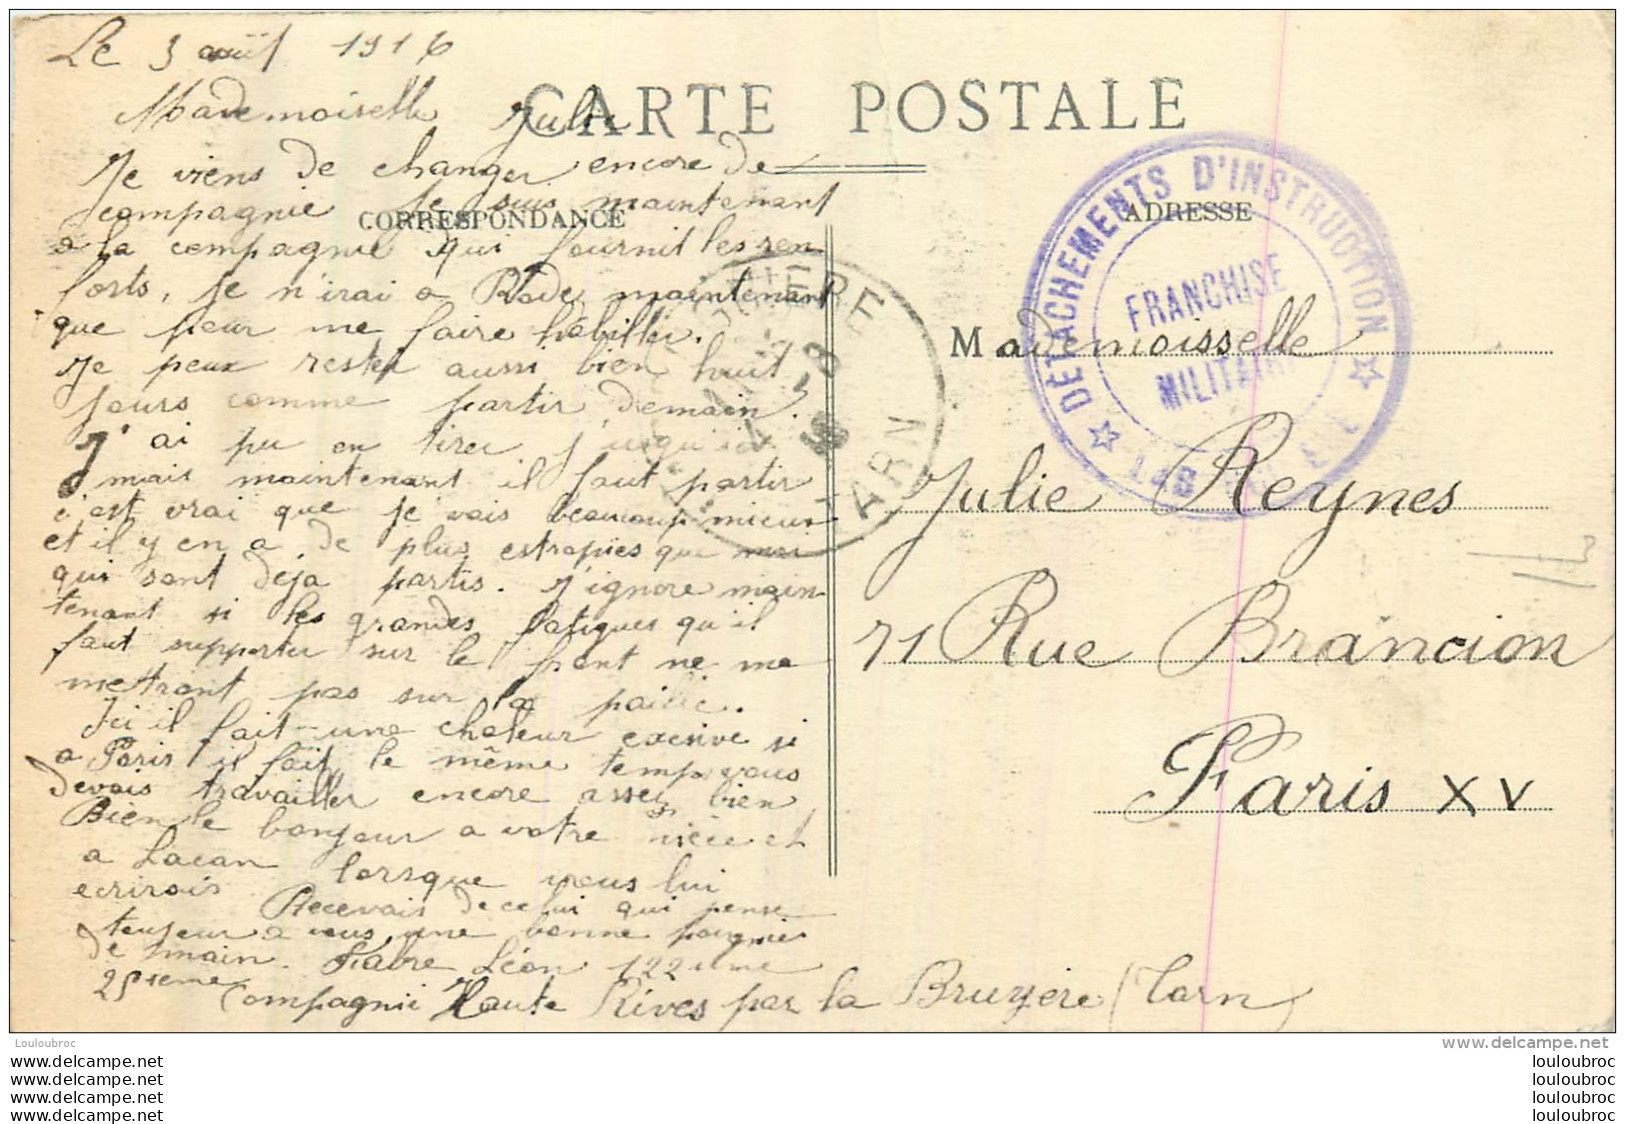 Le 3 août 1916
CARTE POSTALE
Mademoiselle Julie
Je viens de changer encore de
compagnie Je suis maintenant
CORRESPONDANCE
a la compagnie qui fournit les ren
forts, Je n'irai a Rodez maintenant
que pour me faire habiller.
Je peux rester aussi bien huit
jours comme partir demain.
J'ai pu en tirer jusqu'ici
mais maintenant il faut partir
c'est vrai que je vais beaucoup mieux
et il y en a de plus estropiés que moi
qui sont deja partis. J'ignore main
tenant si les grandes fatigues qu'il
faut supporter sur le front ne me
mettront pas sur la paille.
Ici il fait une chaleur exesive si
a Paris il fait le même temps vous
devais travailler encore assez bien
Bien le bonjour a votre nièce et
a Lacan lorsque vous lui
ecrirais Recevais de celui qui pense
toujour a vous une bonne poignie
de main. Favre Léon 122eme
25ieme Compagnie Haute Rives par la Bruyere (Tarn)
ADRESSE
Mademoisselle
Julie Reynes
71 Rue Brancion
Paris XV
DÉTACHEMENTS D'INSTRUCTION
FRANCHISE
MILITAIRE
TARN
Louloubroc
www.delcampe.net
www.delcampe.net
www.delcampe.net
www.delcampe.net
www.delcampe.net
louloubroc
louloubroc
louloubroc
louloubroc